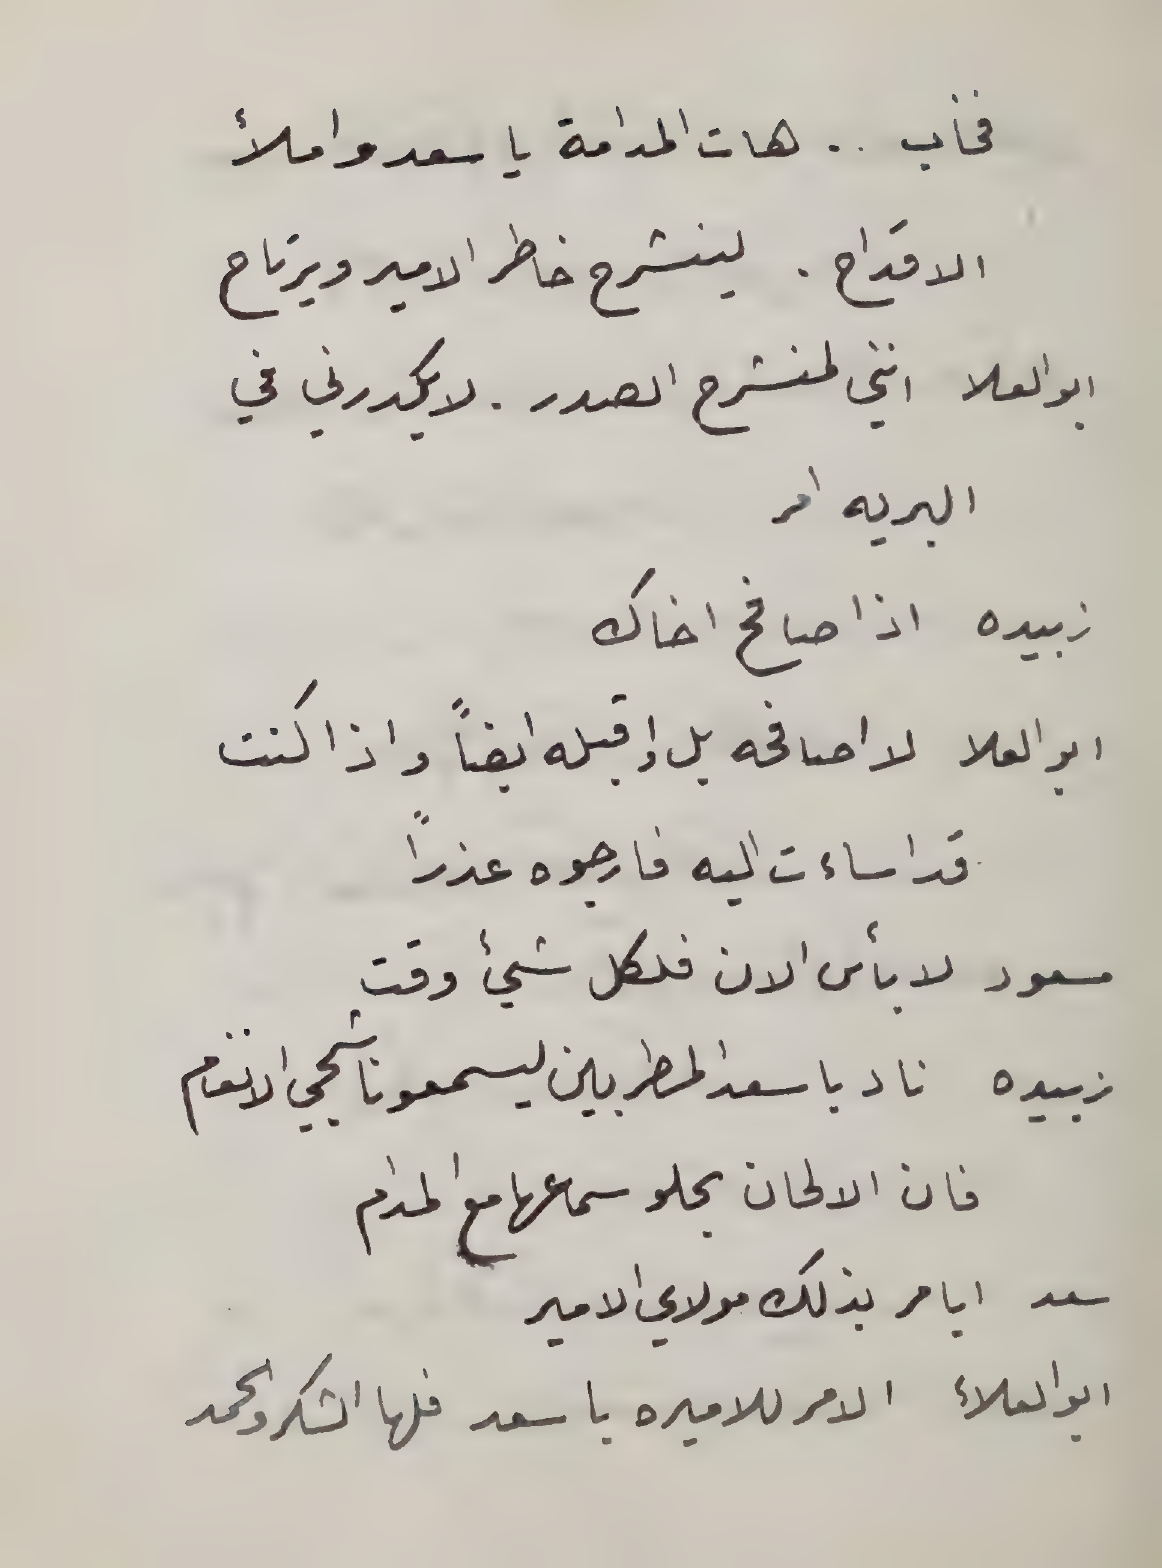 فخاب .. هات المدامة يا سعد واملأ
الاقداح . لينشرح خاطر الامير ويرتاح
ابو العلا انني لمنشرح الصدر . لا يكدرني في
البريه امر
زبيده اذا صافح اخاك
ابو العلا لا اصافحه بل واقبله ايضاً واذا كنت
قد اساءت اليه فارجوه عذراً
مسعود لا بأس الان فلكل شيئ وقت
زبيده ناد يا سعد المطربين ليسمعونا شجي الانغام
فان الالحان يحلو سماعها مع المدام
سعد ايامر بذلك مولاي الامير
ابو العلاء الامر للاميره يا سعد فلها الشكر والحمد